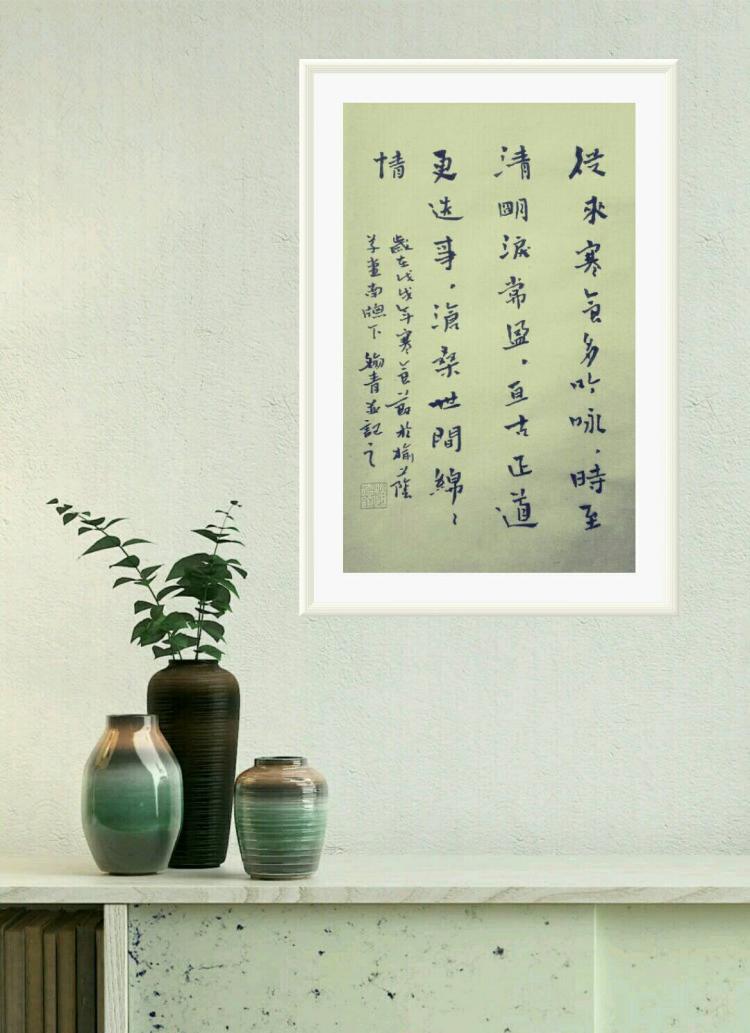 從來寒食多吟咏.時至
清明淚常盈.亘古正道
更迭事.滄桑世間綿々
情
歲在戊戌年寒食節於榆
草堂南牕下 翰青並記之